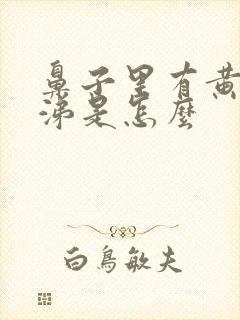 鼻子里有黄
涕是怎麼
白鳥敏夫